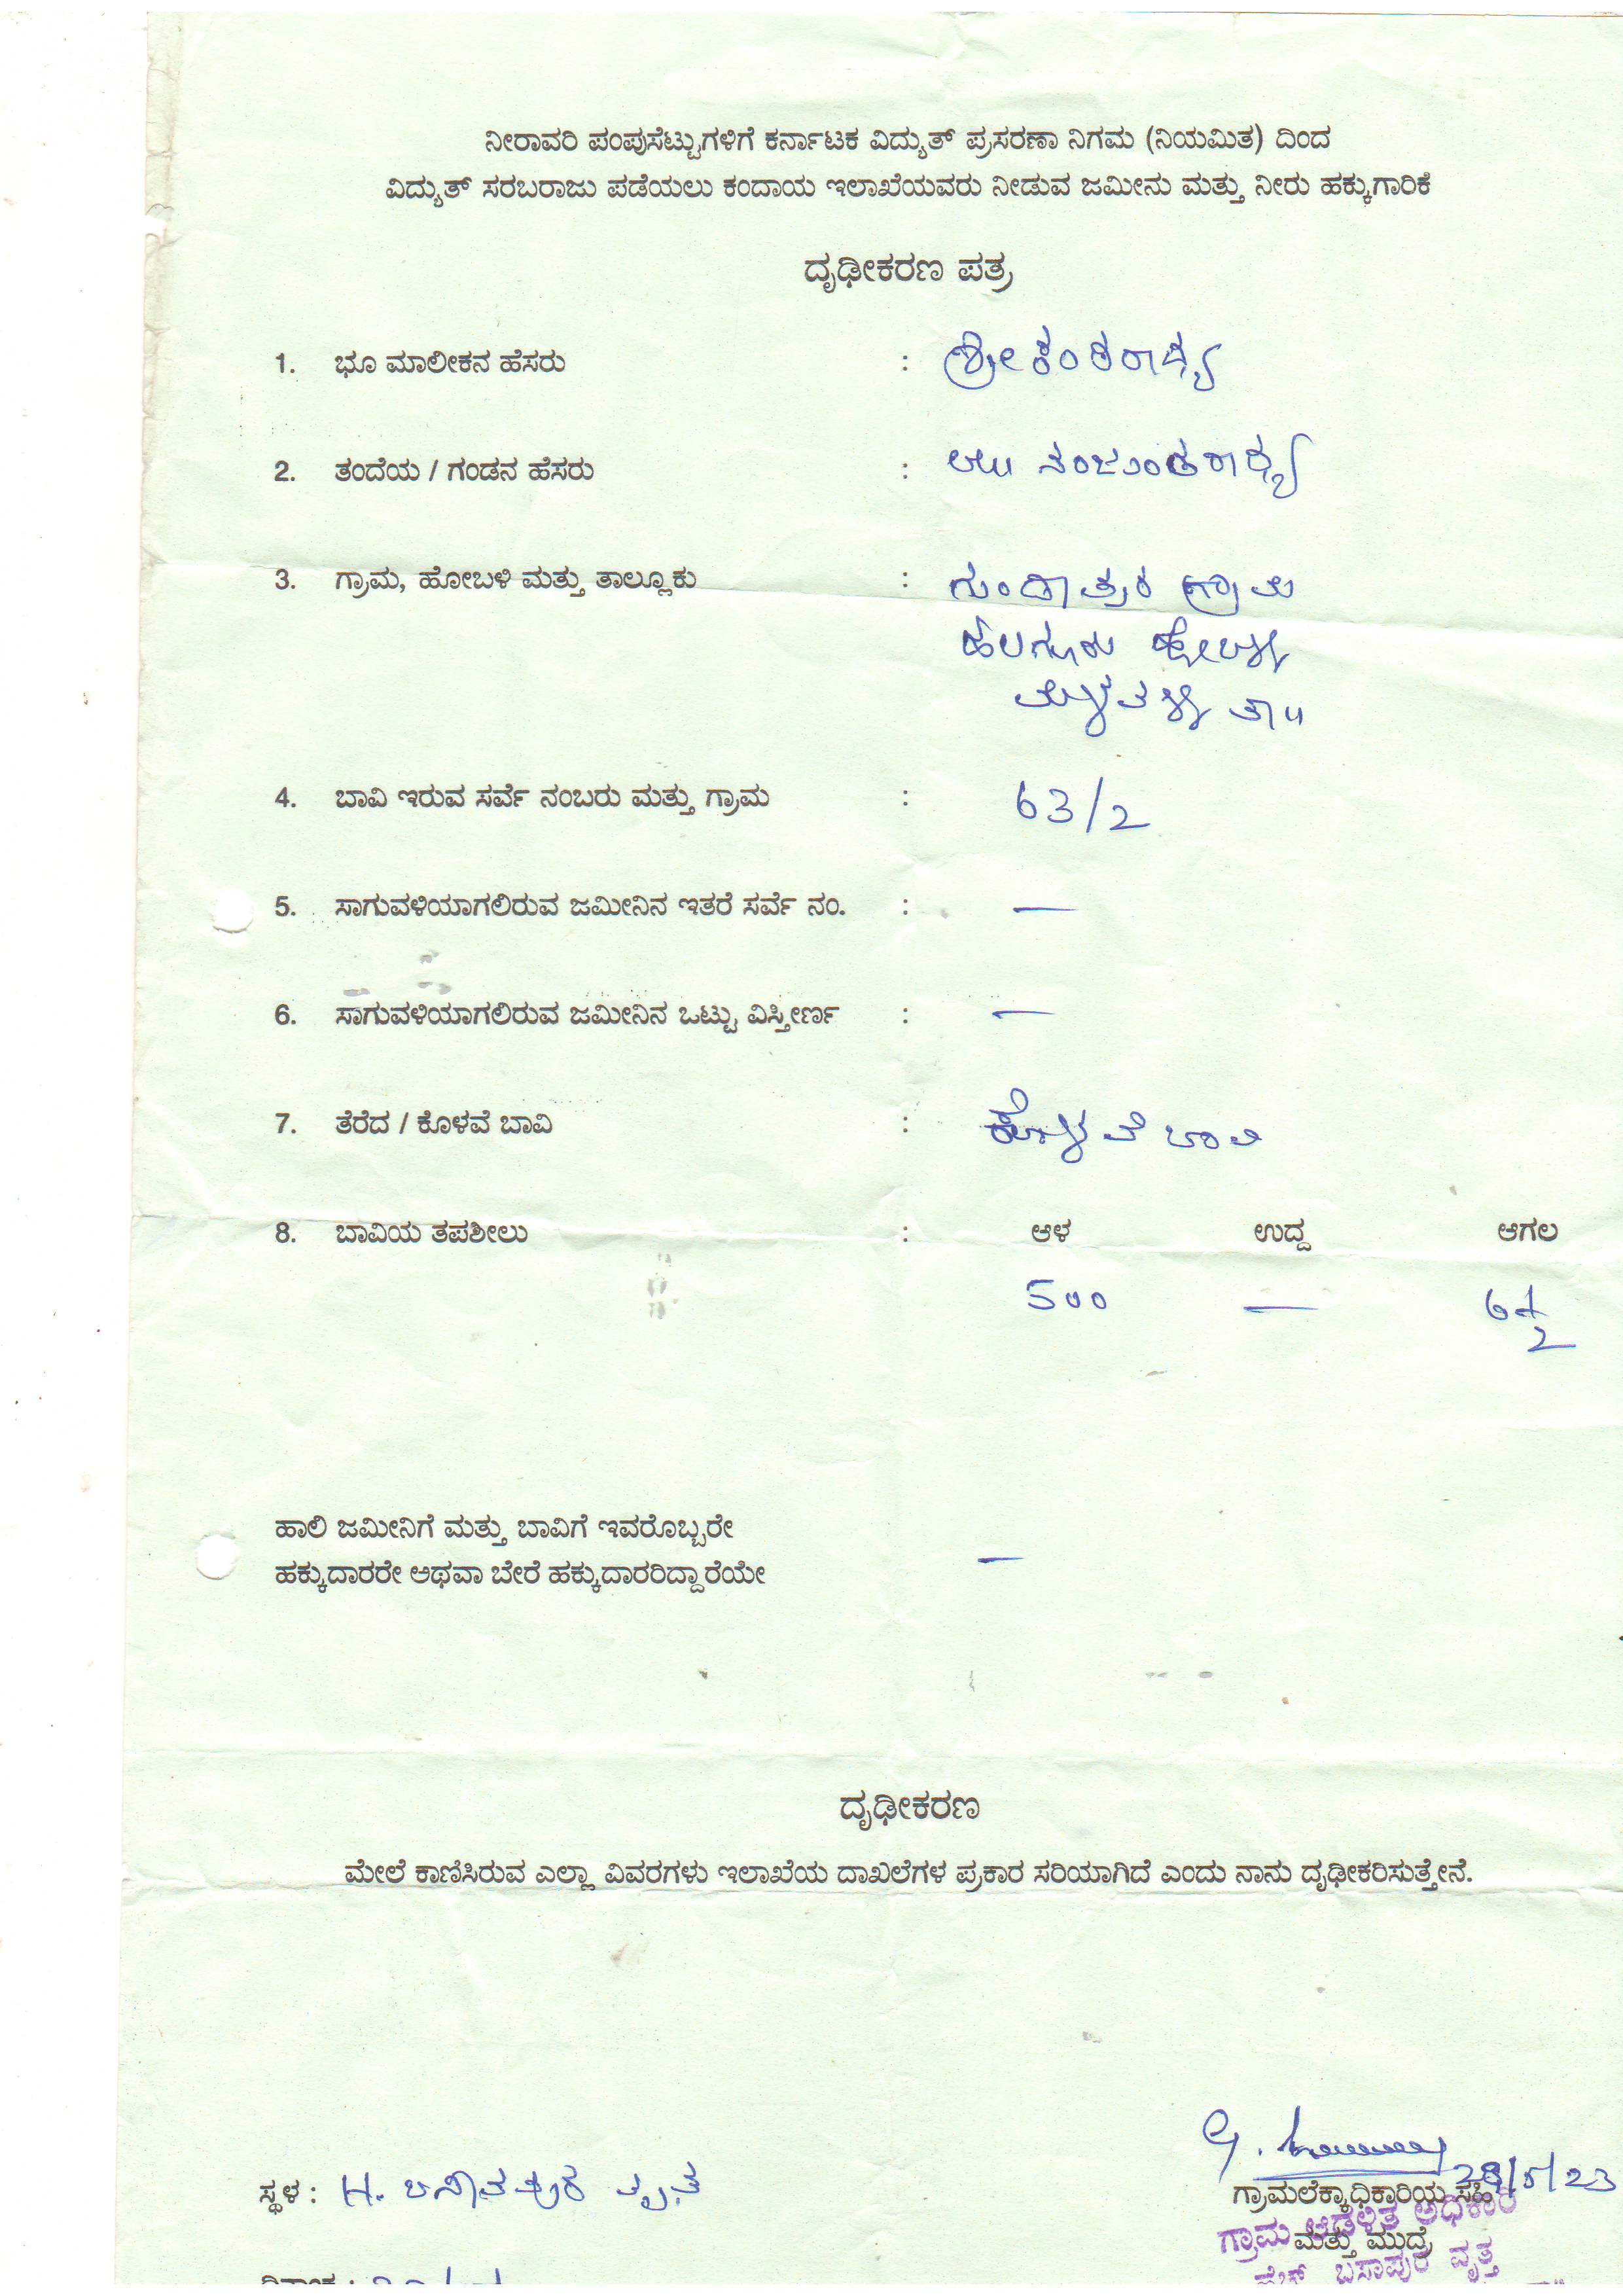 ನೀರಾವರಿ ಪಂಪುಸೆಟ್ಟುಗಳಿಗೆ ಕರ್ನಾಟಕ ವಿದ್ಯುತ್ ಪ್ರಸರಣಾ ನಿಗಮ (ನಿಯಮಿತ) ದಿಂದ
ವಿದ್ಯುತ್ ಸರಬರಾಜು ಪಡೆಯಲು ಕಂದಾಯ ಇಲಾಖೆಯವರು ನೀಡುವ ಜಮೀನು ಮತ್ತು ನೀರು ಹಕ್ಕುಗಾರಿಕೆ
ದೃಢೀಕರಣ ಪತ್ರ
1. ಭೂ ಮಾಲೀಕನ ಹೆಸರು :
2. ತಂದೆಯ / ಗಂಡನ ಹೆಸರು :
3. ಗ್ರಾಮ, ಹೋಬಳಿ ಮತ್ತು ತಾಲ್ಲೂಕು : ಗ್ರಾಮ
ಹಲಗೂರು ಹೋಬಳಿ
ಮಳವಳ್ಳಿ ತಾ॥
4. ಬಾವಿ ಇರುವ ಸರ್ವೆ ನಂಬರು ಮತ್ತು ಗ್ರಾಮ : 63/2
5. ಸಾಗುವಳಿಯಾಗಲಿರುವ ಜಮೀನಿನ ಇತರೆ ಸರ್ವೆ ನಂ. : —
6. ಸಾಗುವಳಿಯಾಗಲಿರುವ ಜಮೀನಿನ ಒಟ್ಟು ವಿಸ್ತೀರ್ಣ : —
7. ತೆರೆದ / ಕೊಳವೆ ಬಾವಿ : ಕೊಳವೆ ಬಾವಿ
8. ಬಾವಿಯ ತಪಶೀಲು : ಆಳ ಉದ್ದ ಆಗಲ
500 —
ಹಾಲಿ ಜಮೀನಿಗೆ ಮತ್ತು ಬಾವಿಗೆ ಇವರೊಬ್ಬರೇ
ಹಕ್ಕುದಾರರೇ ಅಥವಾ ಬೇರೆ ಹಕ್ಕುದಾರರಿದ್ದಾರೆಯೇ —
ದೃಢೀಕರಣ
ಮೇಲೆ ಕಾಣಿಸಿರುವ ಎಲ್ಲಾ ವಿವರಗಳು ಇಲಾಖೆಯ ದಾಖಲೆಗಳ ಪ್ರಕಾರ ಸರಿಯಾಗಿದೆ ಎಂದು ನಾನು ದೃಢೀಕರಿಸುತ್ತೇನೆ.
ಸ್ಥಳ : H. ವೃತ್ತ
ಗ್ರಾಮಲೆಕ್ಕಾಧಿಕಾರಿಯ ಸಹಿ
ಮತ್ತು ಮುದ್ರೆ
ಗ್ರಾಮ ಆಡಳಿತ ಅಧಿಕಾರಿ
ಹೆಚ್ ಬಸಾಪುರ ವೃತ್ತ